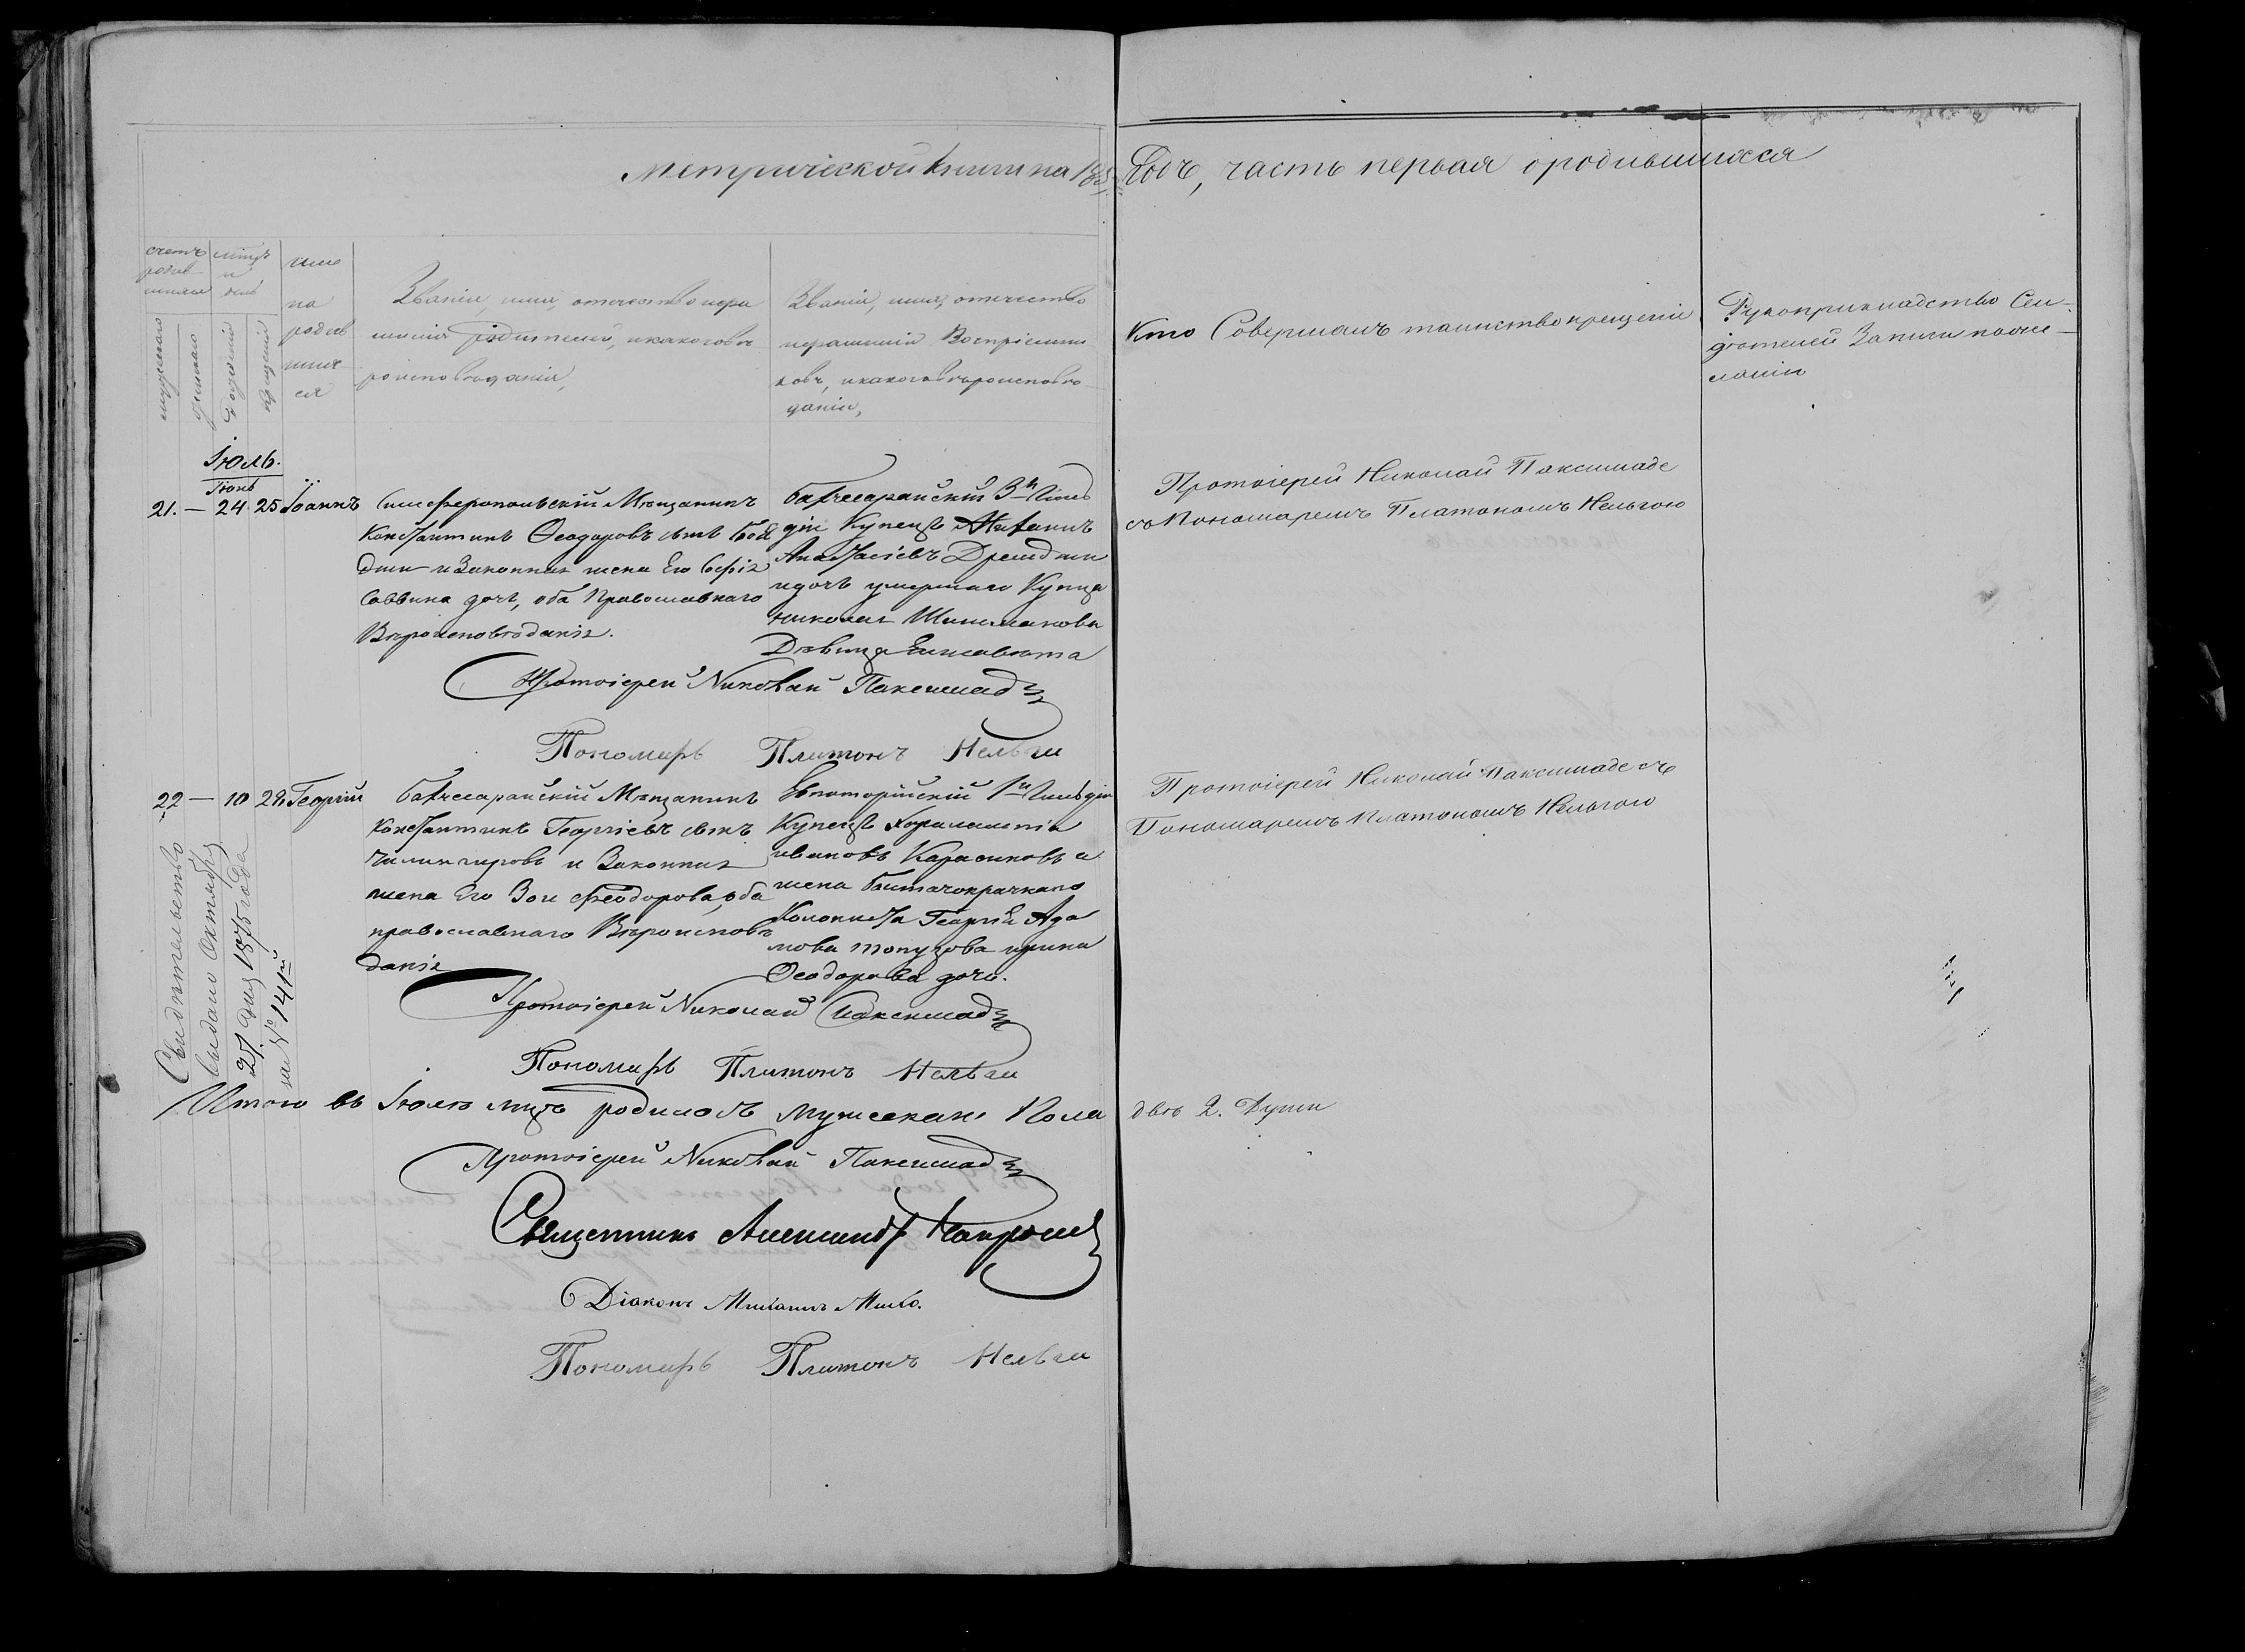 Метрической книги на 185 Годъ, часть первая о родившихся
счетъ родив шихся
мужескаго
женскаго
мѣсяцъ и день
рожденія
крещенія
име на родив шихъ ся
Званіе, имя, отечество и фа
милія родителей, и какого вѣ
роисповѣданія,
Званіе, имя, отчество
и фамилія Воспріемни
ковъ, и какого вѣроисповѣ
данія,
Кто Совершалъ таинство крещенія
Рукоприкладство Сви-
дѣтелей Записи по же-
ланію
Іюль.
Іюнь
21. — 24 25 Іоаннъ
Симферопольскій Мѣщанинъ
Константинъ Ѳеодоровъ сынъ
и Законная жена Его Софія
Саввина дочь, оба Православнаго
Вѣроисповѣданія.
Бахчесарайскій 3й Гиль
діи Купецъ
Анастасіевъ
и дочь умершаго Купца
Николая Шишманова
Дѣвица Елисавета
Протоіерей Николай Паксимаде
съ Пономаремъ Платономъ Нельгою
Протоіерей Николай Паксимадъ
Пономарь Платонъ Нельга
22 — 10 28 Георгій
Бахчесарайскій Мѣщанинъ
Константинъ Георгіевъ сынъ
Чилингировъ и Законная
жена Его Зои Феодорова, оба
православнаго Вѣроисповѣ
данія
Евпаторійскій 1й Гильдіи
Купецъ Харалампій
Ивановъ Карасиновъ и
жена
Колониста Георгія Ада
мова Топузова Ирина
Ѳеодорова дочь.
Протоіерей Николай Паксимаде съ
Пономаремъ Платономъ Нельгою
Свидѣтельство
выдано Октября
27 дня 1875 года
за № 141й
Протоіерей Николай Паксимадъ
Пономарь Платонъ Нельга
Итого въ Іюлѣ мцѣ родилось мужескаго Пола двѣ 2. Души
Протоіерей Николай Паксимадъ
Священникъ Александръ
Діаконъ Михаилъ
Пономарь Платонъ Нельга